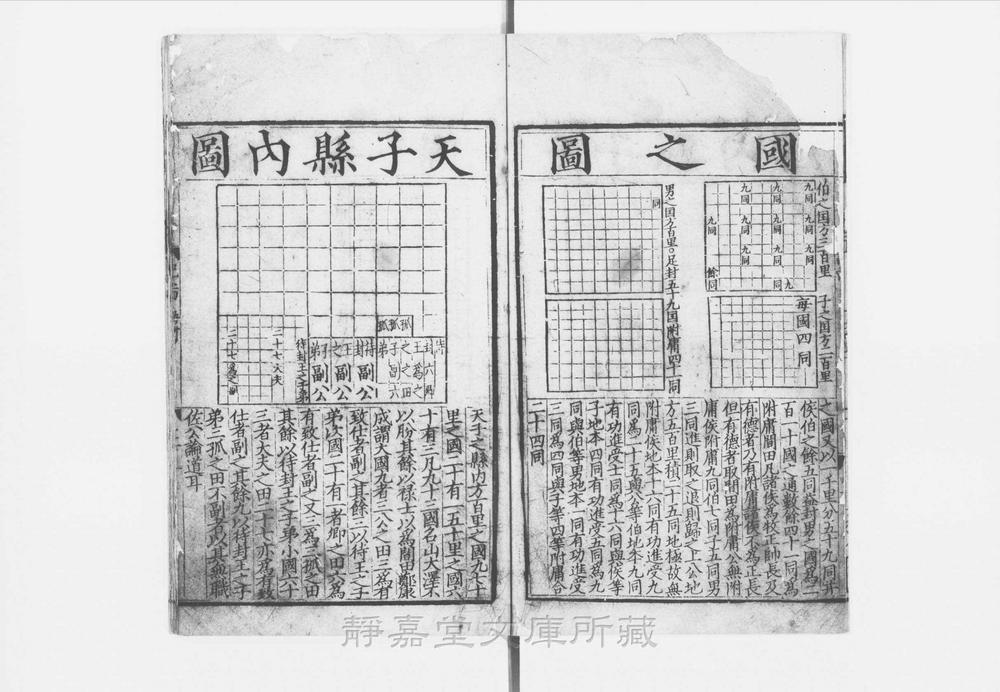 國之圖
伯之国方三百里
子之国方二百里
九同
九同
九同
九同
九同
九同
九同
九同
九同
九同
餘同
每國四同
男之国方百里。足封五十九国附庸四十一同
同
之國又以
千里分五十九同幷
侯伯之餘五同益封男二國爲二
百一十國之通數餘四十一同爲
附庸閒田凡諸侯爲牧正帥長及
有德者乃有附庸諸侯不爲正長
但有德者取閒田爲附庸公無附
庸侯附庸九同伯七同子五同男
三同進則取之退則歸之上公地
方五百里積二十五同地極故無
附庸侯地本十六同有功進受九
同爲二十五與公等伯地本九同
有功進受七同爲一十六同與侯等
子地本四同有功進受五同爲九
同與伯等男地本一同有功進受
三同爲四同與子等四等附庸合
二十四同
天子縣內圖
孤孤孤
副公
副公
副公
二十七大夫
待封王之子弟
天子之縣內方百里之國九七十
里之國二十有一五十里之國六
十有三凡九十三國名山大澤不
以朌其餘以祿士以爲閒田鄭康
成謂大國九者三公之田三爲有
致仕者副之其餘三以待王之子
弟次國二十有一者卿之田六爲
有致仕者副之又三爲三孤之田
其餘以待封王之子弟小國六十
三者大夫之田二十七亦爲有致
仕者副之其餘九以待封王之子
弟三孤之田不副者以其無職
佐公論道耳
靜嘉堂文庫所藏